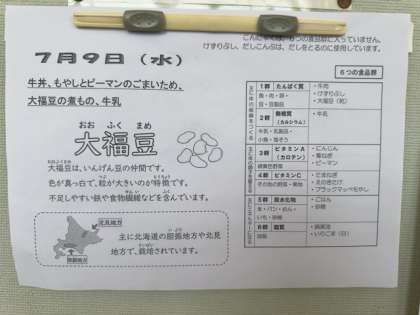 けずりぶし、だしこんぶは、だしをとるのに使用しています。
7月9日(水)
牛丼、もやしとピーマンのごまいため、
大福豆の煮もの、牛乳
おお ふく まめ
大福豆
おおふくまめ
大福豆は、いんげん豆の仲間です。
色が真っ白で、粒が大きいのが特徴です。
不足しやすい鉄や食物繊維などを含んでいます。
北見地方
胆振地方
主に北海道の胆振地方や北見
地方で、栽培されています。
6つの食品群
1群 たんぱく質
魚・肉・卵・
豆・豆製品
・牛肉
・けずりぶし
・大福豆(乾)
2群 無機質
(カルシウム)
牛乳・乳製品・
小魚・海そう
・牛乳
3群 ビタミンA
(カロテン)
緑黄色野菜
・にんじん
・葉ねぎ
・ピーマン
4群 ビタミンC
その他の野菜・果物
・たまねぎ
・えのきたけ
・ブラックマッペもやし
5群 炭水化物
米・パン・めん・
いも・砂糖
・ごはん
・砂糖
6群 脂質
油脂
・綿実油
・いりごま(白)